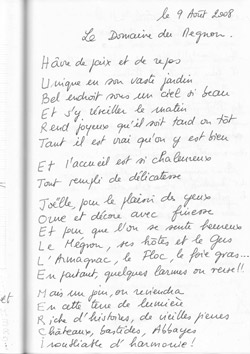 le 9 Août 2008
Le Domaine du Mégnon.
Hâvre de paix et de repos
Unique en son vaste jardin
Bel endroit sous un ciel si beau
Et s'y réveiller le matin
Rend joyeux qu'il soit tard ou tôt
Tant il est vrai qu'on y est bien
Et l'accueil est si chaleureux
Tout rempli de délicatesse
Joëlle, pour le plaisir des yeux
Orne et décore avec finesse
Et pour que l'on se sente heureux
Le Mégnon, ses hôtes et le Gers
L'Armagnac, le Ploc, le foie gras...
En partant, quelques larmes on verse!!
Mais un jour, on reviendra
En cette terre de lumière
Riche d'histoires, de vieilles pierres
Châteaux, bastides, Abbayes
Inoubliable d'harmonie!
et